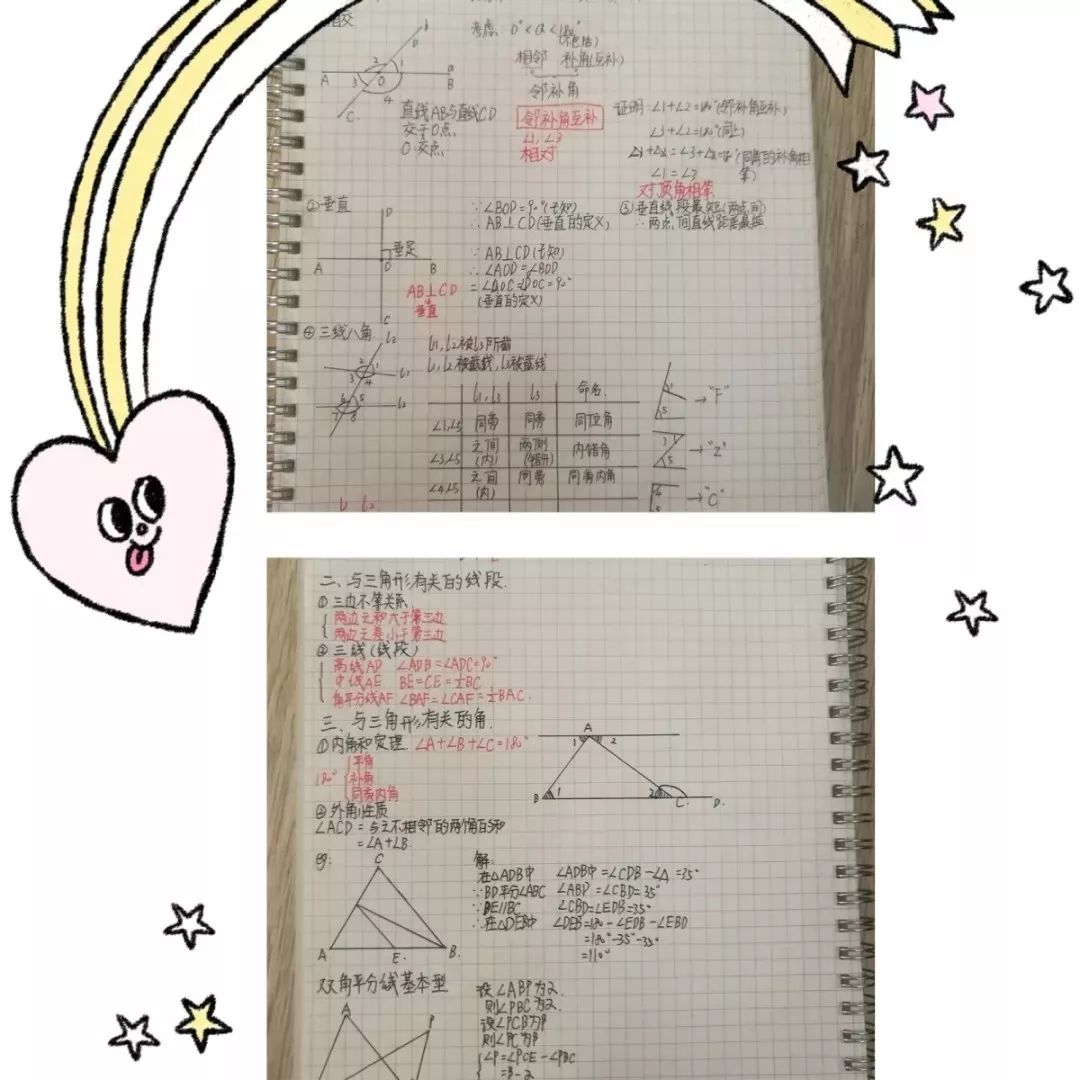 相交
考虑: 0°<α<180°
(不包括)
相邻 补角(互补)
邻补角
直线AB与直线CD
交于O点.
O:交点.
邻补角互补
∠1,∠3
相对
证明:∠1+∠2=180°(邻补角互补)
∠3+∠2=180°(同上)
∠1=∠3
对顶角相等
②垂直
垂足
AB⊥CD
垂直
∵∠BOD=90°(已知)
∴AB⊥CD(垂直的定义)
∵AB⊥CD(已知)
∴∠AOD=∠BOD
(垂直的定义)
③垂直线段最短(两点间)
④三线八角
l1,l2被l3所截
l1,l2被截线,l3被截线
l1,l2 l3 命名.
∠1,∠5 同旁 同旁 同位角
∠3,∠5 之间(内) 两侧(错开) 内错角
∠4,∠5 之间(内) 同旁 同旁内角
→"F"
→"Z"
→"C"
二、与三角形有关的线段.
①三边不等关系
两边之和大于第三边
两边之差小于第三边
②三线(线段)
高线AD ∠ADB=∠ADC=90°
中线AE BE=CE=½BC
角平分线AF ∠BAF=∠CAF=½BAC.
三、与三角形有关的角.
①内角和定理 ∠A+∠B+∠C=180°
180° 平角
补角
同旁内角
A
1 2
B 1 2 C. D.
②外角性质
∠ACD=与之不相邻的两角的和
=∠A+∠B.
例:
C
A E. B.
解:
在△ADB中 ∠ADB中=∠CDB-∠A=35°
∵BD平分∠ABC ∠ABD=∠CBD=35°
∵DE//BC ∠CBD=∠EDB=35°
∴在△DEB中 ∠DEB=180-∠EDB-∠EBD
=180°-35°-35°
=110°
双角平分线基本型
A P
设∠ABP为α.
则∠PBC为α.
设∠PCB为β
则∠PC为β
∠P=∠PCE-∠PBC
=β-α